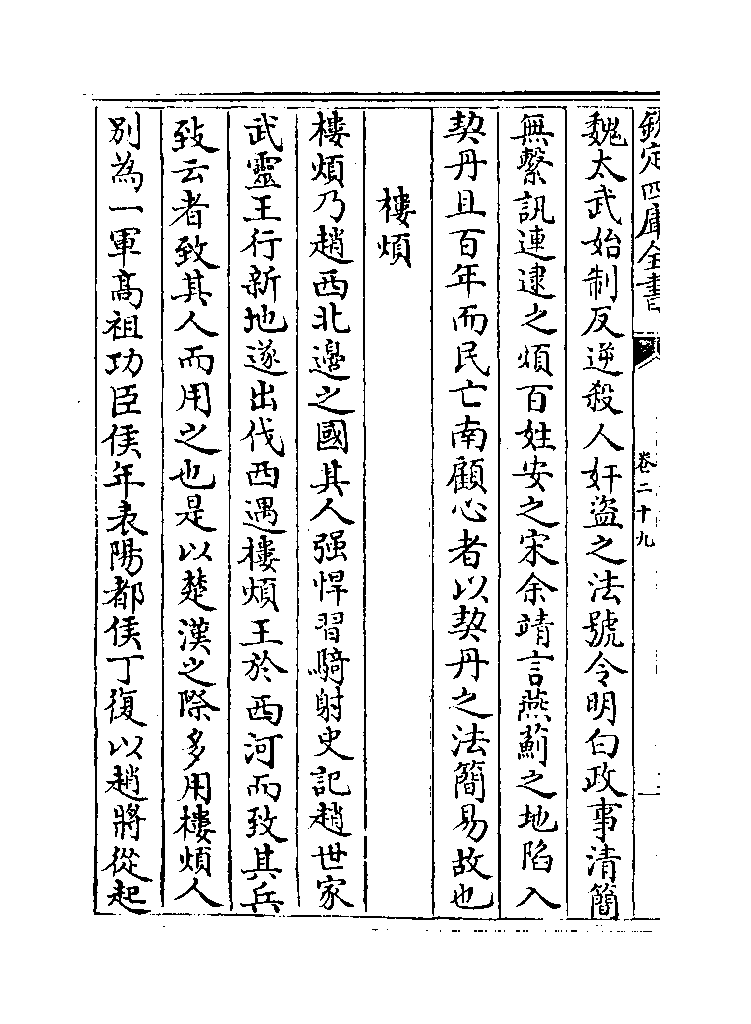 欽定四庫全書
卷二十九
魏太武始制反逆殺人奸盜之法號令明白政事清簡
無繫訊連逮之煩百姓安之宋余靖言燕薊之地陷入
契丹且百年而民亡南顧心者以契丹之法簡易故也
樓煩
樓煩乃趙西北邊之國其人强悍習騎射史記趙世家
武靈王行新地遂出代西遇樓煩王於西河而致其兵
致云者致其人而用之也是以楚漢之際多用樓煩人
别為一軍髙祖功臣侯年表陽都侯丁復以趙將從起